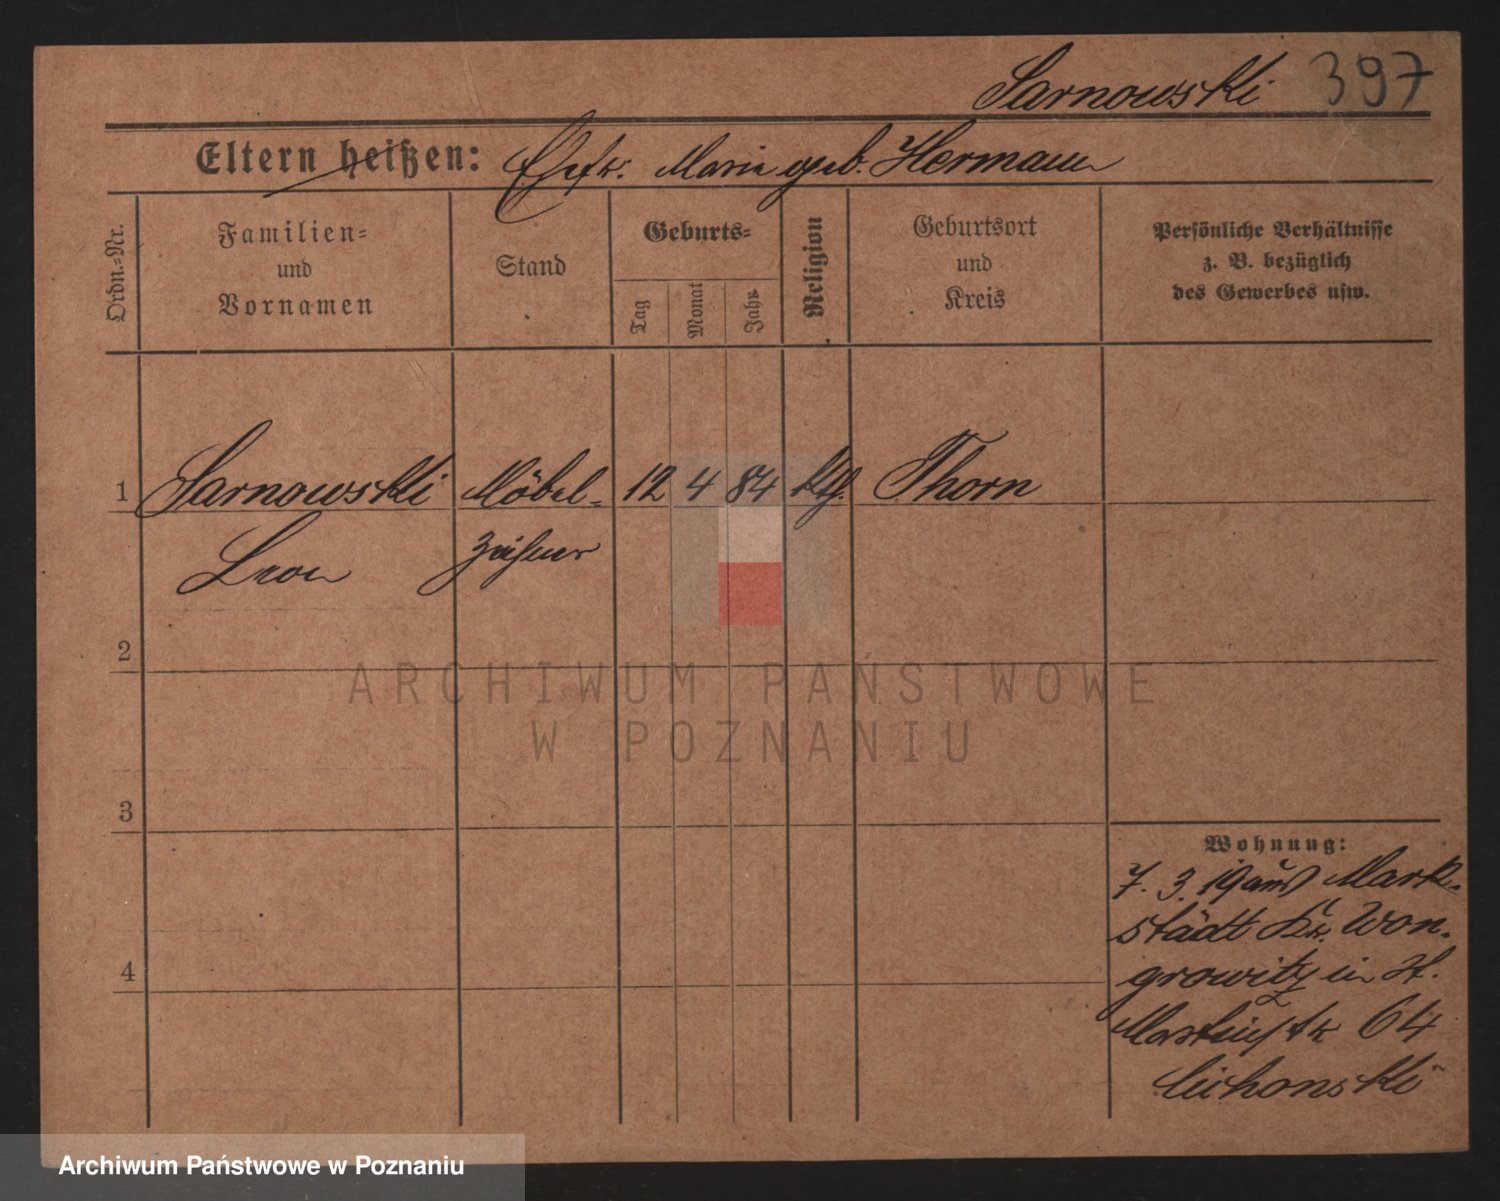 Sarnowski 397
Eltern heißen: Ehefr. Marie geb. Hermann
Ordn.-Nr.
Familien-
und
Vornamen
Stand
Geburts-
Tag
Monat
Jahr
Religion
Geburtsort
und
Kreis
Persönliche Verhältnisse
z. B. bezüglich
des Gewerbes usw.
1 Sarnowski Möbel- 12 4 84 ktg. Thorn
Leon
2
3
4
Wohnung:
7. 3. 19 aus Mark-
städt Kr. Won-
growitz in
Martinstr 64
ARCHIWUM PAŃSTWOWE
W POZNANIU
Archiwum Państwowe w Poznaniu